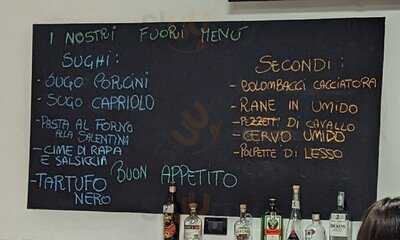 I NOSTRI FUORI MENÚ
SUGHI:
- SUGO PORCINI
- SUGO CAPRIOLO
- PASTA AL FORNO
ALLA SALENTINA
- CIME DI RAPA
E SALSICCIA
- TARTUFO
NERO
SECONDI:
- COLOMBACCI CACCIATORA
- RANE IN UMIDO
- PEZZETTI DI CAVALLO
- CERVO UMIDO
- POLPETTE DI LESSO
BUON APPETITO